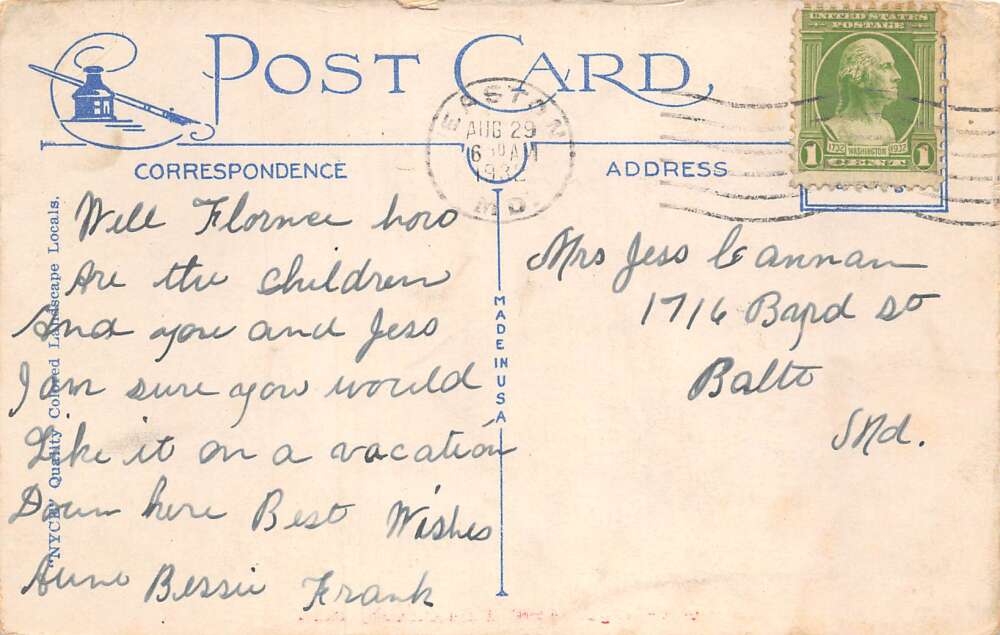 POST CARD
UNITED STATES
POSTAGE
1732 WASHINGTON 1932
1 CENT 1
EASTON
AUG 29
6 AM
1932
MD.
CORRESPONDENCE
ADDRESS
Well Flornce how
Are the children
And you and Jess
I am sure you would
Like it on a vacation
Down here Best Wishes
Aunt Bessie Frank
Mrs Jess Cannan
1716 Bayd St
Balto
Md.
MADE IN USA
"NYCE" Quality Colored Landscape Locals.